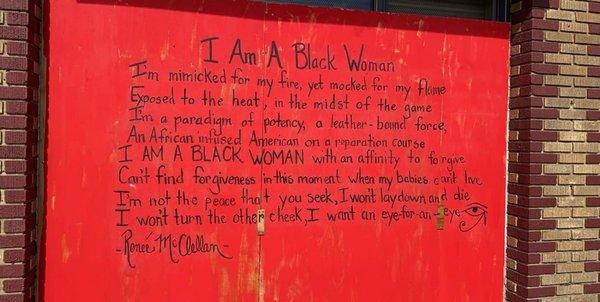 I Am A Black Woman
I'm mimicked for my fire, yet mocked for my flame
Exposed to the heat, in the midst of the game
I'm a paradigm of potency, a leather-bound force,
An African infused American on a reparation course
I AM A BLACK WOMAN with an affinity to forgive
Can't find forgiveness in this moment when my babies can't live
I'm not the peace that you seek, I won't lay down and die
I won't turn the other cheek, I want an eye-for-an-eye
-Roneé McClellan-